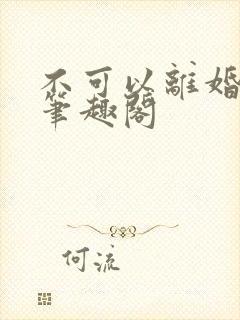 不可以離婚
筆趣閣
何流